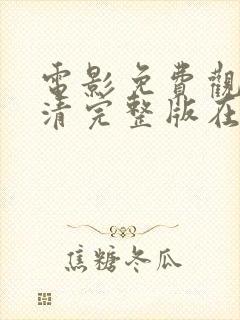 電影免費觀
清完整版在
焦糖冬瓜